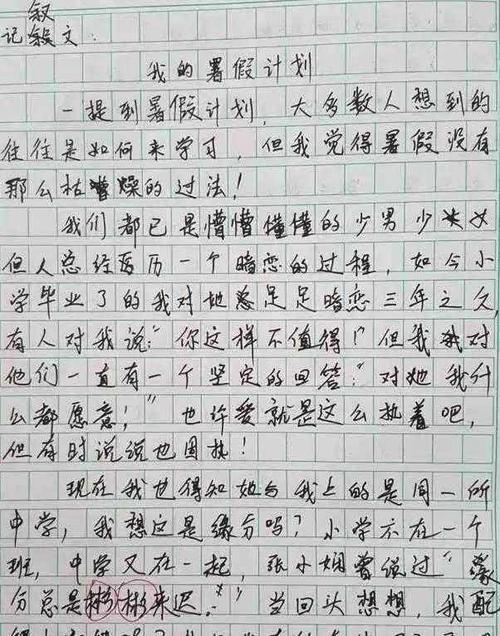 叙
记叙文:
我的暑假计划
一提到暑假计划,大多数人想到的
往往是如何来学习,但我觉得暑假没有
那么枯燥的过法!
我们都已是懵懵懂懂的少男少女
但人总经历一个暗恋的过程,如今小
学毕业了的我对她总是足足暗恋三年之久,
有人对我说:“你这样不值得!”但我对
他们一直有一个坚定的回答:“对她我什
么都愿意!”也许爱就是这么执着吧,
但有时说说也固执!
现在我也得知她与我上的是同一所
中学,我想这是缘分吗?小学不在一个
班,中学又在一起,张小娴曾说过“缘
分总是彬彬来迟。”当回头想想,我配